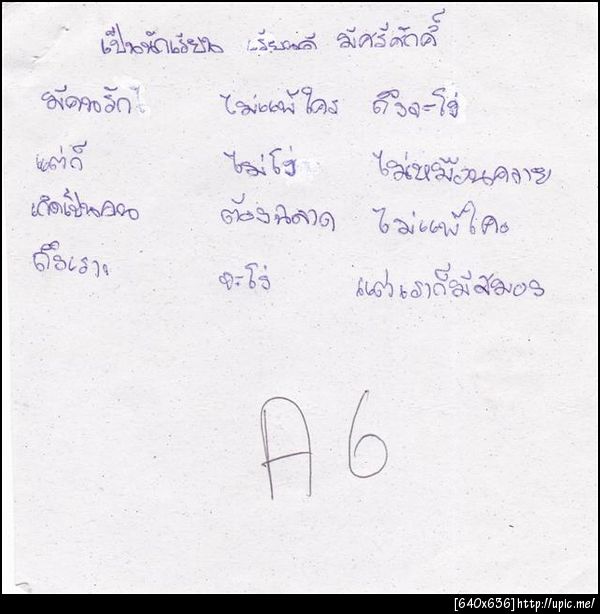 เป็นนักเรียน เรียนดี มีศรีศักดิ์
มีคนรัก ไม่แพ้ใคร ถึงจะโง่
แต่ก็ ไม่โง่ ไม่เหมือนควาย
เกิดเป็นคน ต้องฉลาด ไม่แพ้ใคร
ถึงเรา จะโง่ แต่เราก็มีสมอง
A6
[640x636]http://upic.me/